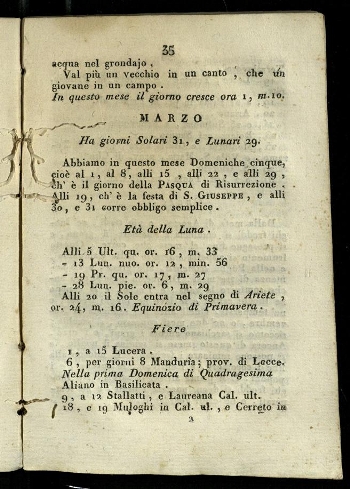 35
acqua nel grondajo.
Val più un vecchio in un canto, che un
giovane in un campo.
In questo mese il giorno cresce ora 1, m. 10.
MARZO
Ha giorni Solari 31, e Lunari 29.
Abbiamo in questo mese Domeniche cinque,
cioè al 1, al 8, alli 15, alli 22, e alli 29,
ch' è il giorno della PASQUA di Risurrezione.
Alli 19, ch' è la festa di S. GIUSEPPE, e alli
30, e 31 corre obbligo semplice.
Età della Luna.
Alli 5 Ult. qu. or. 16, m. 33
- 13 Lun. nuo. or. 12, min. 56
- 19 Pr. qu. or. 17, m. 27
- 28 Lun. pie. or. 6, m. 29
Alli 20 il Sole entra nel segno di Ariete,
or. 24, m. 16. Equinozio di Primavera.
Fiere
1, a 15 Lucera.
6, per giorni 8 Manduria; prov. di Lecce.
Nella prima Domenica di Quadragesima
Aliano in Basilicata.
9, a 12 Stallatti, e Laureana Cal. ult.
18, e 19 Muloghi in Cal. ul., e Cerreto in
2